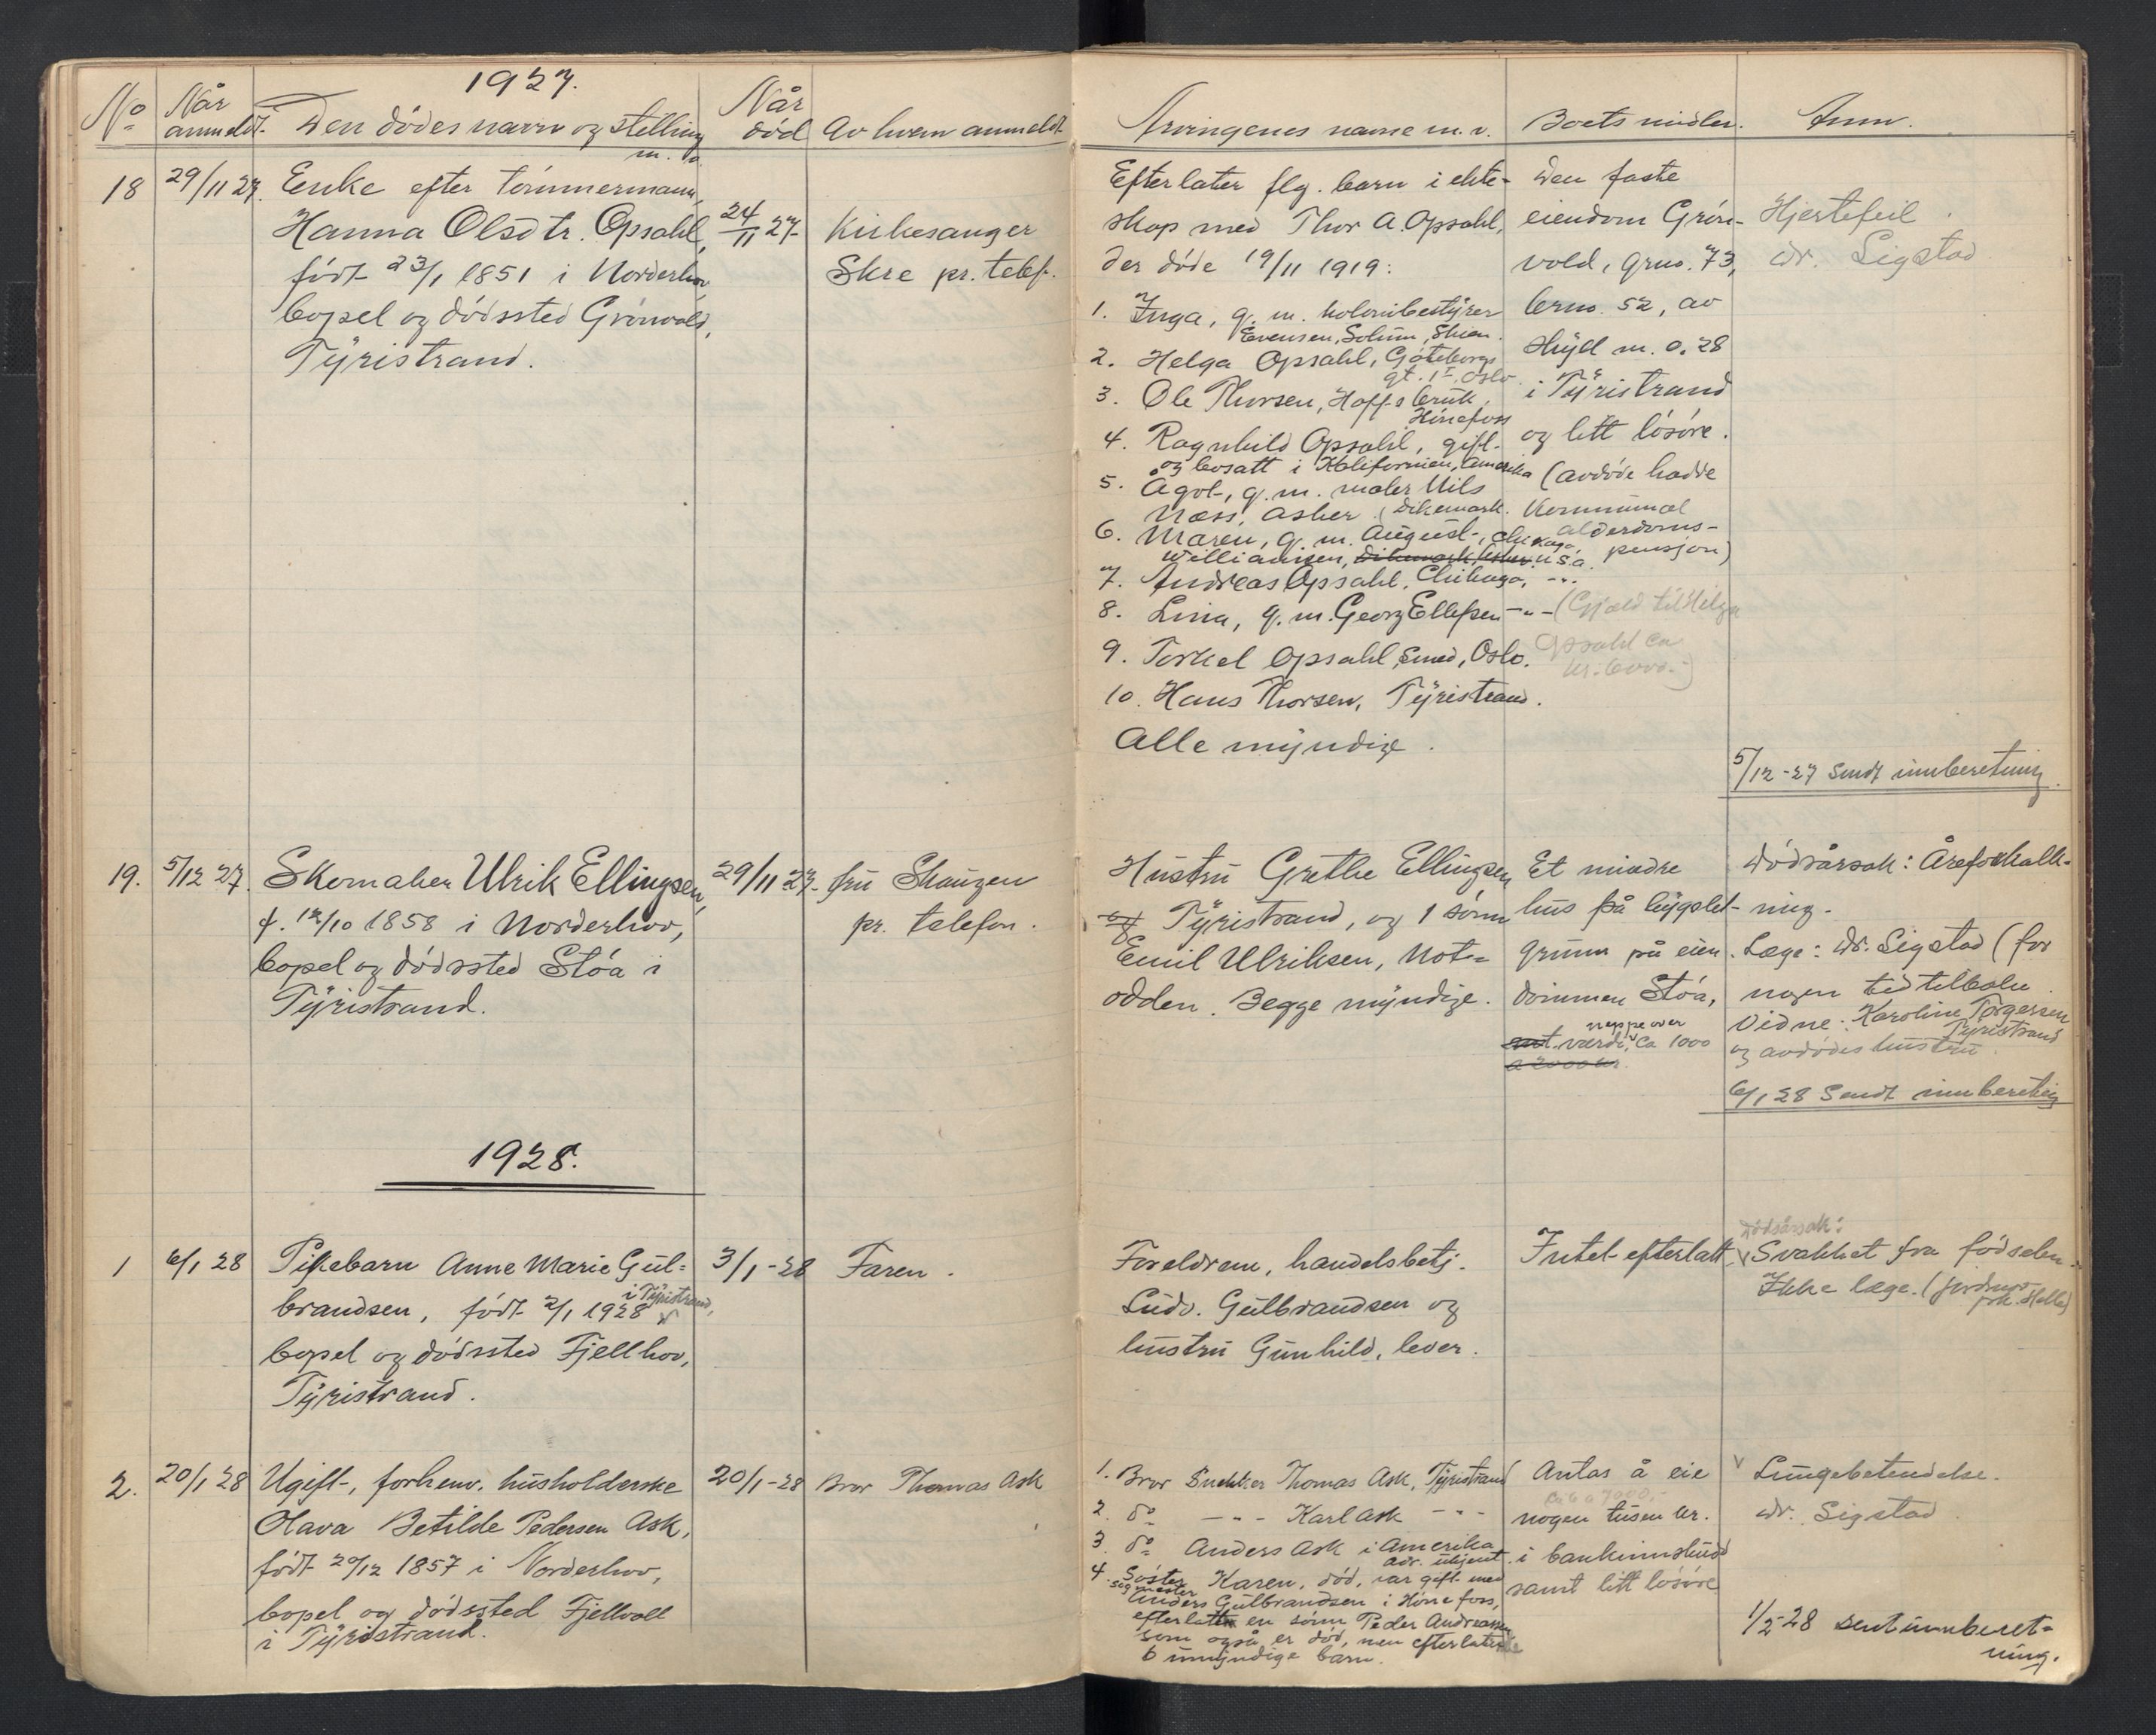 1927.
No
Når anmeldt.
Den dødes navn og stilling m. v.
Når død
Av hvem anmeldt
18
29/11 27.
Enke efter tømmermann,
Hanna Olsdtr. Opsahl,
født 23/1 1851 i Norderhov,
bopel og dødssted Grønvold,
Tyristrand.
24/11 27.
Kirkesanger
Skre pr. telef.
19.
5/12 27.
Skomaker Ulrik Ellingsen,
f. 12/10 1858 i Norderhov,
bopel og dødssted Støa i
Tyristrand.
29/11 27.
fru Skaugen
pr. telefon.
1928.
1
6/1 28
Pikebarn Anne Marie Gul-
brandsen, født 2/1 1928 i Tyristrand,
bopel og dødssted Fjellhov,
Tyristrand.
3/1-28
Faren.
2.
20/1 28
Ugift, forhenv. husholderske
Olava Betilde Pedersen Ask,
født 20/12 1857 i Norderhov,
bopel og dødssted Fjellvoll
i Tyristrand.
20/1-28
Bror Thomas Ask
Arvingenes navne m. v.
Boets midler.
Anm.
Efterlater flg. barn i ekte-
skap med Thor A. Opsahl,
der døde 19/11 1919:
1. Inga, g. m. kolonibestyrer
Evensen, Solum, Skien.
2. Helga Opsahl, Gøteborg-
gt. 1 I, Oslo.
3. Ole Thorsen, Hoffs bruk,
Hønefoss
4. Ragnhild Opsahl, gift
og bosatt i Kalifornien, Amerika
5. Ågot, g. m. maler Nils
Næss, Asker. (Dikemark.
6. Maren, g. m. August, Chikago,
Williamsen, Dikemark Asker. U.S.a.
7. Andreas Opsahl, Chikago, -"-
8. Lina, g. m. Georg Ellefsen -"-
9. Torkel Opsahl, smed, Oslo.
10. Hans Thorsen, Tyristrand.
Alle myndige.
Den faste
eiendom Grøn-
vold, grno. 73,
brno. 52, av
skyld m. 0.28
i Tyristrand
og litt løsøre.
(avdøde hadde
kommunal
alderdoms-
pensjon)
(Gjæld til Helga
Opsahl ca
kr. 6000.-)
Hjertefeil.
Dr. Sigstad
5/12-27 sendt innberetning.
Hustru Grethe Ellingsen
Tyristrand, og 1 sønn
Emil Ulriksen, Not-
odden. Begge myndige.
Et mindre
hus på bygslet
grunn på eien-
dommen Støa,
neppe over
ant. verdi, ca 1000
a 2000 kr.
Dødsårsak: Åreforkalk-
ning.
Læge: Dr. Sigstad (for
nogen tid tilbake.
Vidne: Karoline Torgersen
Tyristrand
og avdødes hustru.
6/1 28 Sendt innberetnig
Foreldrene, handelsbetj.
Ludv. Gulbrandsen og
hustru Gunhild, lever.
Intet efterlatt.
Dødsårsak:
Svakhet fra fødselen.
Ikke læge. (jordmor
frk. Helle)
1. Bror Snekker Thomas Ask, Tyristrand
2. do -"- Karl Ask -"-
3. do Anders Ask i Amerika
adr. ukjent.
4. Søster Karen, død, var gift med
sagmester Anders Gulbrandsen i Hønefoss,
efterlatt en sønn Peder Andreassen
som også er død, men efterlater
6 umyndige barn.
Antas å eie
ca. 6 a 7000.-
nogen tusen kr.
i bankinnskudd
samt litt løsøre
Lungebetendelse.
Dr. Sigstad
1/2-28 sent innberet-
ning.